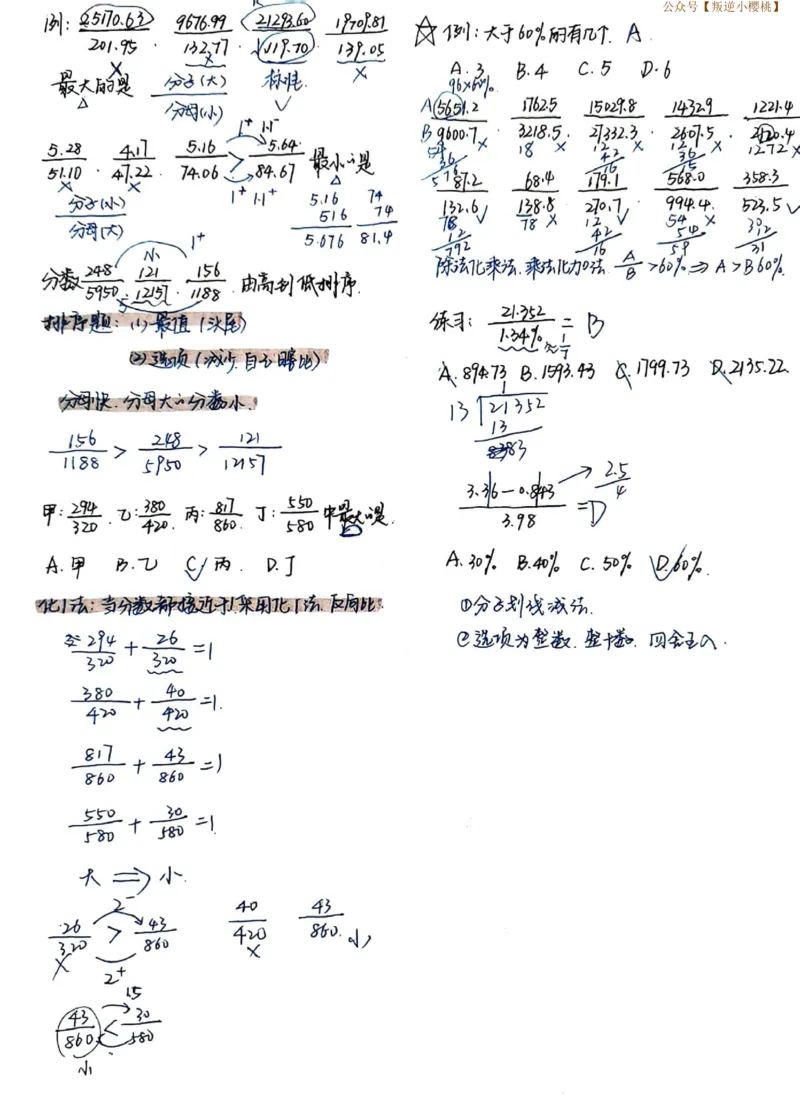 公众号【叛逆小樱桃】
例: 25170.63/201.95 . 9676.99/132.77 . 21293.60/119.70 . 19709.81/139.05
最大的是 分子(大)/分母(小) 标准
5.28/51.10 . 4.17/47.22 . 5.16/74.06 > 5.64/84.67 最小的是
1⁺ 1.1⁻
1⁺ 1.1⁺
分子(小)/分母(大)
5.16 74
516 74
5.676 81.4
小 1⁺
分数 248/5950 . 121/12157 . 156/1188 . 由高到低排序.
5
排序题: (1) 最值 (头尾)
(2) 选项 (减少, 自己瞎比)
分母快. 分母大的分数小.
156/1188 > 248/5950 > 121/12157
甲: 294/320 . 乙: 380/420 . 丙: 817/860 . 丁: 550/580 中最大的是.
A. 甲 B. 乙 C. 丙. D. 丁
化1法: 当分数都接近于1采用化1法. 反向比.
294/320 + 26/320 = 1
380/420 + 40/420 = 1.
817/860 + 43/860 = 1
550/580 + 30/580 = 1.
大 ⟹ 小.
2⁻
26/320 > 43/860 40/420 43/860. 小
X X
2⁺
1.5
43/860 < 30/580
小
☆ 例: 大于60%的有几个. A.
A. 3 B. 4 C. 5 D. 6
96×60%
A 5651.2 1762.5 15029.8 1432.9 1221.4
B 9600.7 . 3218.5 . 27332.3 . 2607.5 . 2120.4
54 18 12 12 1272
36 42 36
576 16 15
187.2 68.4 179.1 568.0 358.3
132.6 138.8 270.7 994.4 523.5
78 78 12 54 30
12 42 54 12
792 16 59 31
除法化乘法. 乘法化加法. A/B > 60% ⇒ A > B60%.
练习: 21.352/1.34% = B
≈ 1/7
A. 894.73 B. 1593.43 C. 1799.73 D. 2135.22
1
13 21352
13
83
3.36-0.843/3.98 = D → 2.5/4
A. 30% B. 40% C. 50% D. 60%.
① 分子划线减法.
② 选项为整数. 整十数. 四舍五入.